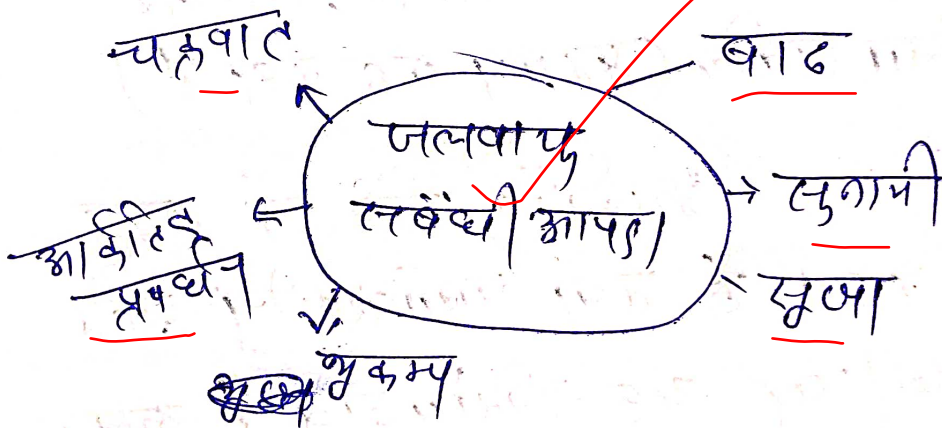 चक्रवात
बाढ
जलवायु
संबंधी आपदा
सुनामी
सूखा
प्रबंधन
भूकम्प